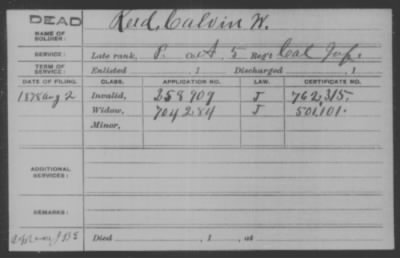 DEAD
NAME OF SOLDIER: Reed, Calvin W.
SERVICE: Late rank, P. Co. A, 5 Reg't Cal Inf.
TERM OF SERVICE: Enlisted , 1 Discharged , 1
DATE OF FILING. CLASS. APPLICATION NO. LAW. CERTIFICATE NO.
1878 Aug 2 Invalid, 258909 J 762,315.
Widow, 704284 J 501,101.
Minor,
ADDITIONAL SERVICES:
REMARKS:
Died , 1 , at